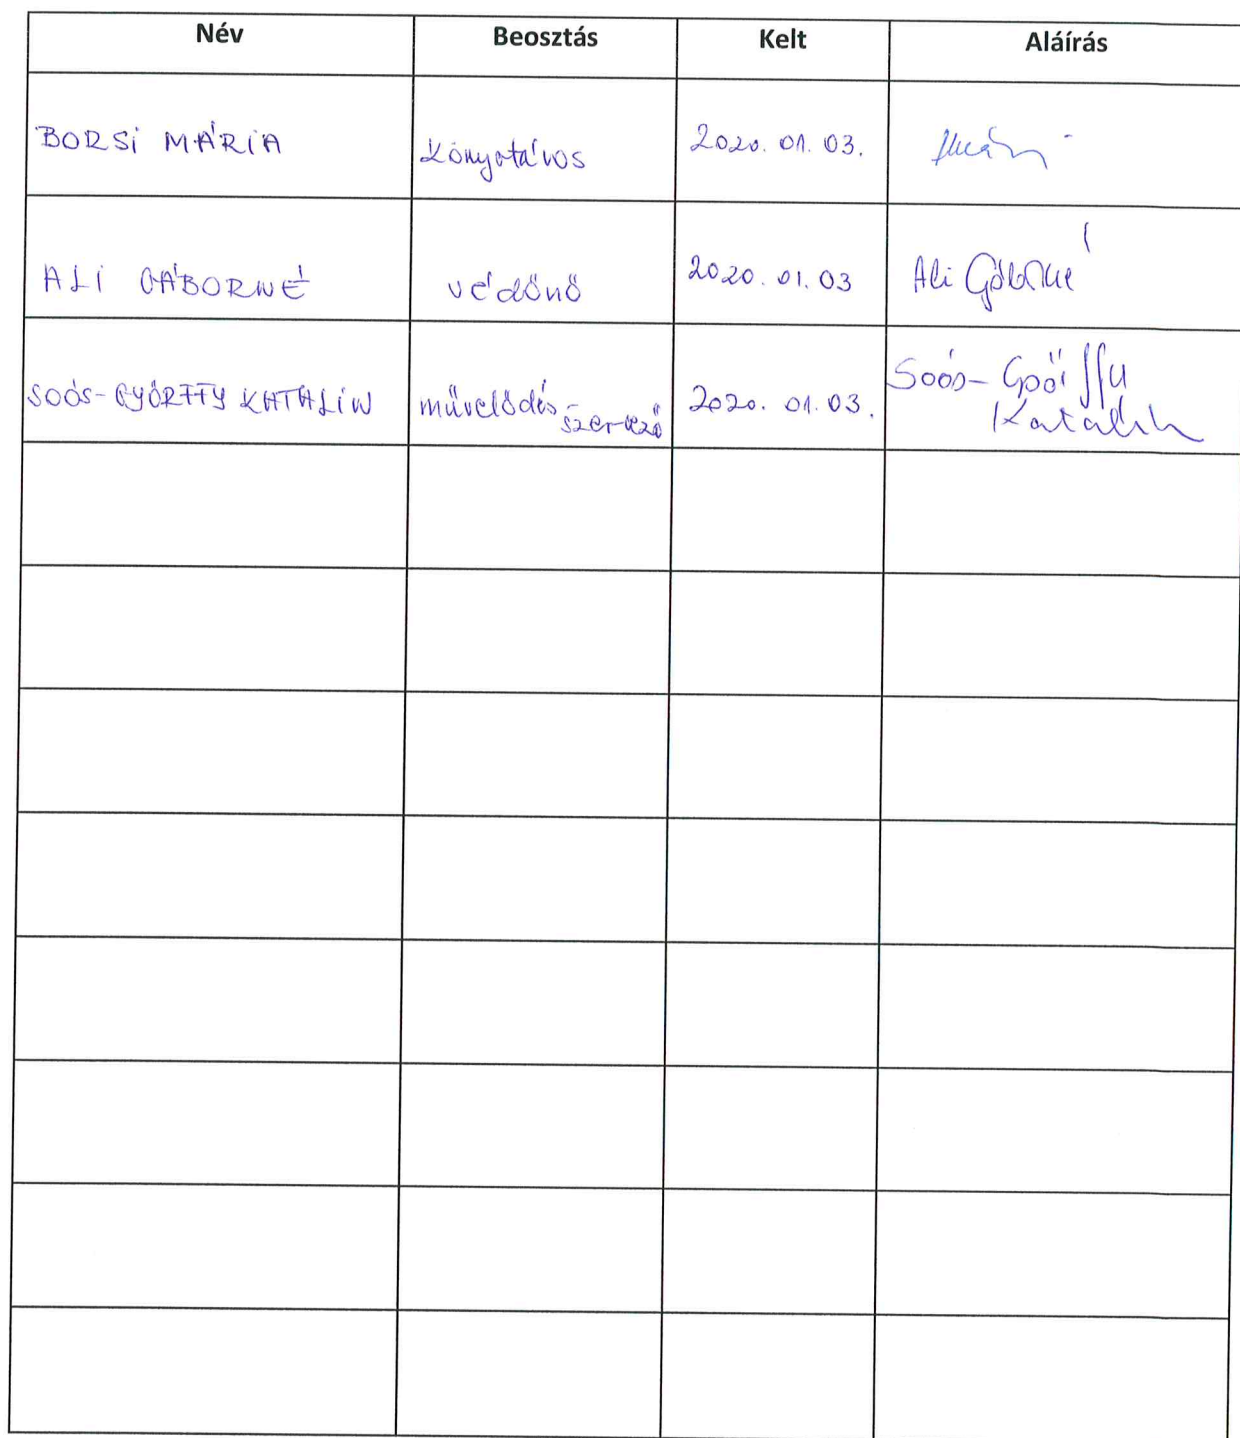 Név Beosztás Kelt Aláírás
BORSI MÁRIA könyvtáros 2020. 01. 03.
ALI GÁBORNÉ védőnő 2020. 01. 03 Ali Gáborné
SOÓS-GYŐRFFY KATALIN művelődés- 2020. 01. 03. Soós-Győrffy
szervező Katalin